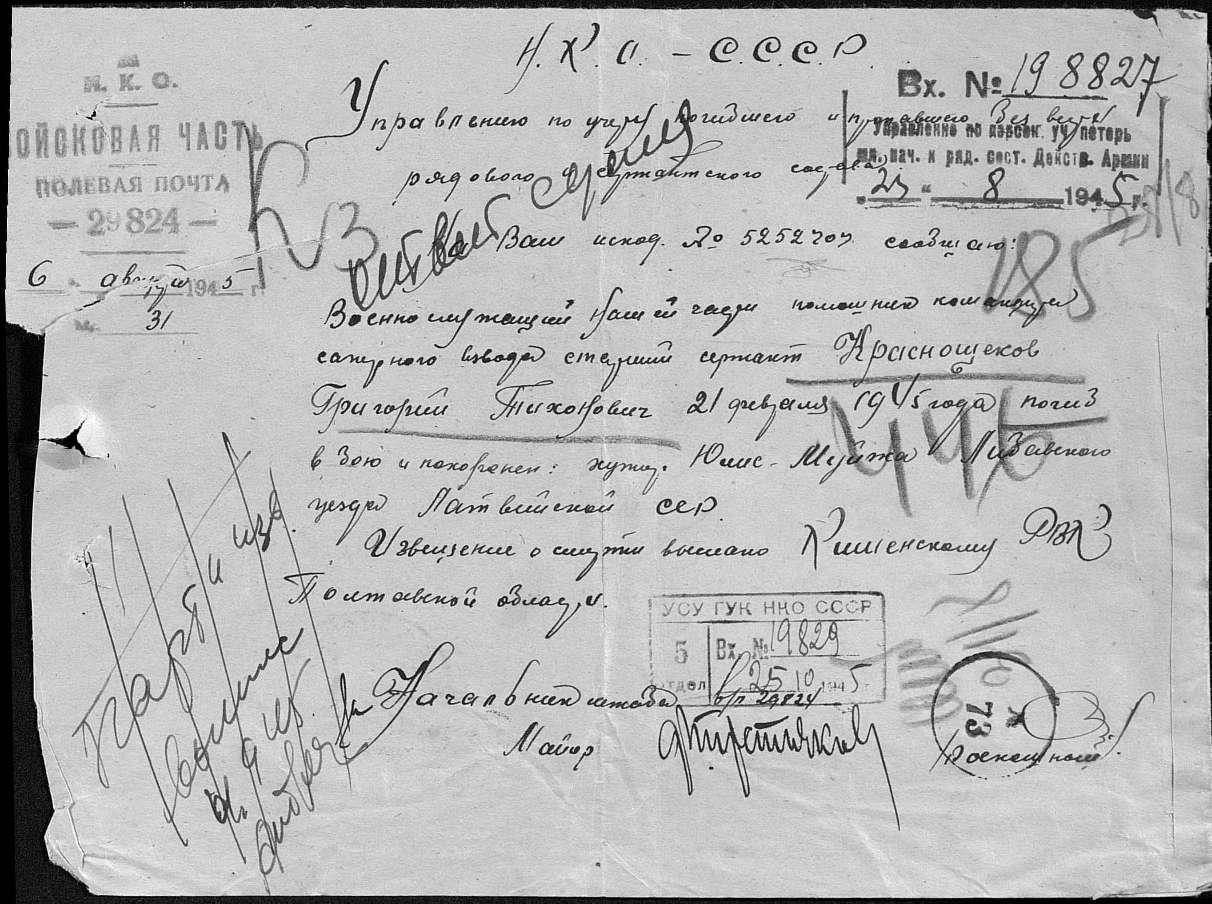 Н. К. О. – С.С.С.Р.
Н. К. О.
ВОЙСКОВАЯ ЧАСТЬ
ПОЛЕВАЯ ПОЧТА
— 29824 —
6 августа 1945 г.
№ 31
Вх. № 198827
Управление по персон. уч. потерь
мл. нач. и ряд. сост. Действ. Армии
"23" 8 1945 г.
Управлению по учету погибшего и пропавшего без вести
рядового и сержантского состава
На Ваш исход. № 525270 сообщаю:
185
Военнослужащий нашей части помошник командира
сапёрного взвода старший сержант Краснощеков
Григорий Тихонович 21 февраля 1945 года погиб
446
в бою и похоронен: хутор Юлис-Муйжа Либавского
уезда Латвийской ССР.
Извещение о смерти выслано Кишенскому РВК
Полтавской области.
УСУ ГУК НКО СССР
5 отдел
Вх. № 19829
25 10 1945 г.
Начальник штаба в/п 29824
Майор
73